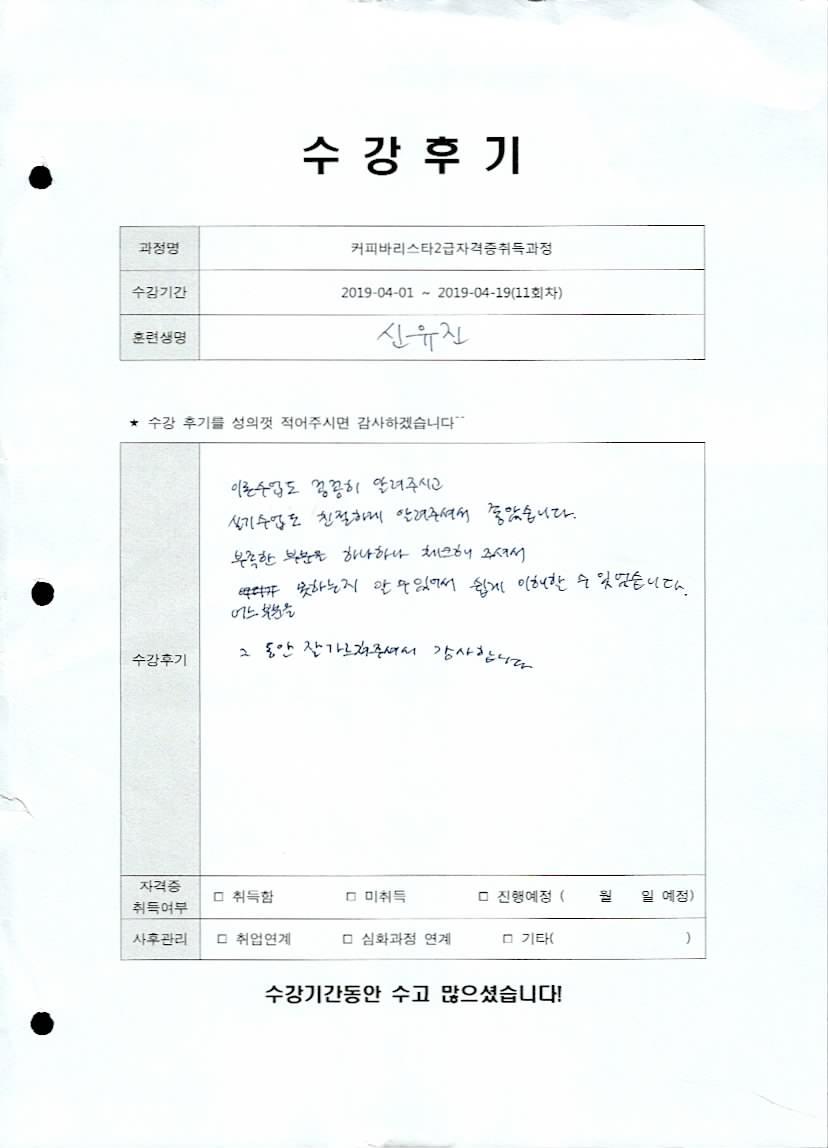 수 강 후 기
과정명 커피바리스타2급자격증취득과정
수강기간 2019-04-01 ~ 2019-04-19(11회차)
훈련생명 신유진
★ 수강 후기를 성의껏 적어주시면 감사하겠습니다~~
이론수업도 꼼꼼히 알려주시고
실기수업도 친절하게 알려주셔서 좋았습니다.
부족한 부분을 하나하나 체크해 주셔서
못하는지 알 수 있어서 쉽게 이해할 수 있었습니다.
어느 부분을
그 동안 잘 가르쳐주셔서 감사합니다
수강후기
자격증 취득여부 □ 취득함 □ 미취득 □ 진행예정 ( 월 일 예정)
사후관리 □ 취업연계 □ 심화과정 연계 □ 기타( )
수강기간동안 수고 많으셨습니다!